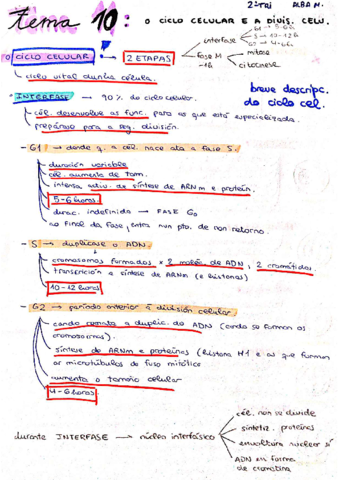 2ºTRI ALBA M.
tema 10: O CICLO CELULAR E A DIVIS. CELU.
O CICLO CELULAR: 2 ETAPAS
interfase
G1 → 5-6h
S → 10-12h
G2 → 4-6h
Fase M
~1h
mitose
citocinese
↳ ciclo vital dunha célula.
breve descripc.
do ciclo cel.
- INTERFASE → 90% do ciclo celular.
cél. desenvolve as func. para as que está especializada.
prepárase para a seg. división.
- G1 → dende q. a cél. nace ata a fase S.
duración variable
cél. aumenta de tam.
intensa activ. de síntese de ARNm e proteín.
5-6 horas
durac. indefinida → FASE G0
ao final da fase, entra nun pto. de non retorno.
- S → duplícase o ADN.
cromosomas formados x 2 moléc. de ADN, 2 cromátidas.
transcrición e síntese de ARNm (e histonas)
10-12 horas
- G2 → período anterior á división celular.
cando remata a duplic. do ADN (cando se forman os
cromosomas).
síntese de ARNm e proteínas (histona H1 e as que forman
os microtúbulos do fuso mitótico
aumenta o tamaño celular
4-6 horas
durante INTERFASE → núcleo interfásico
cél. non se divide
sintetiz. proteínas
envoltura nuclear sí
ADN en forma
de cromatina